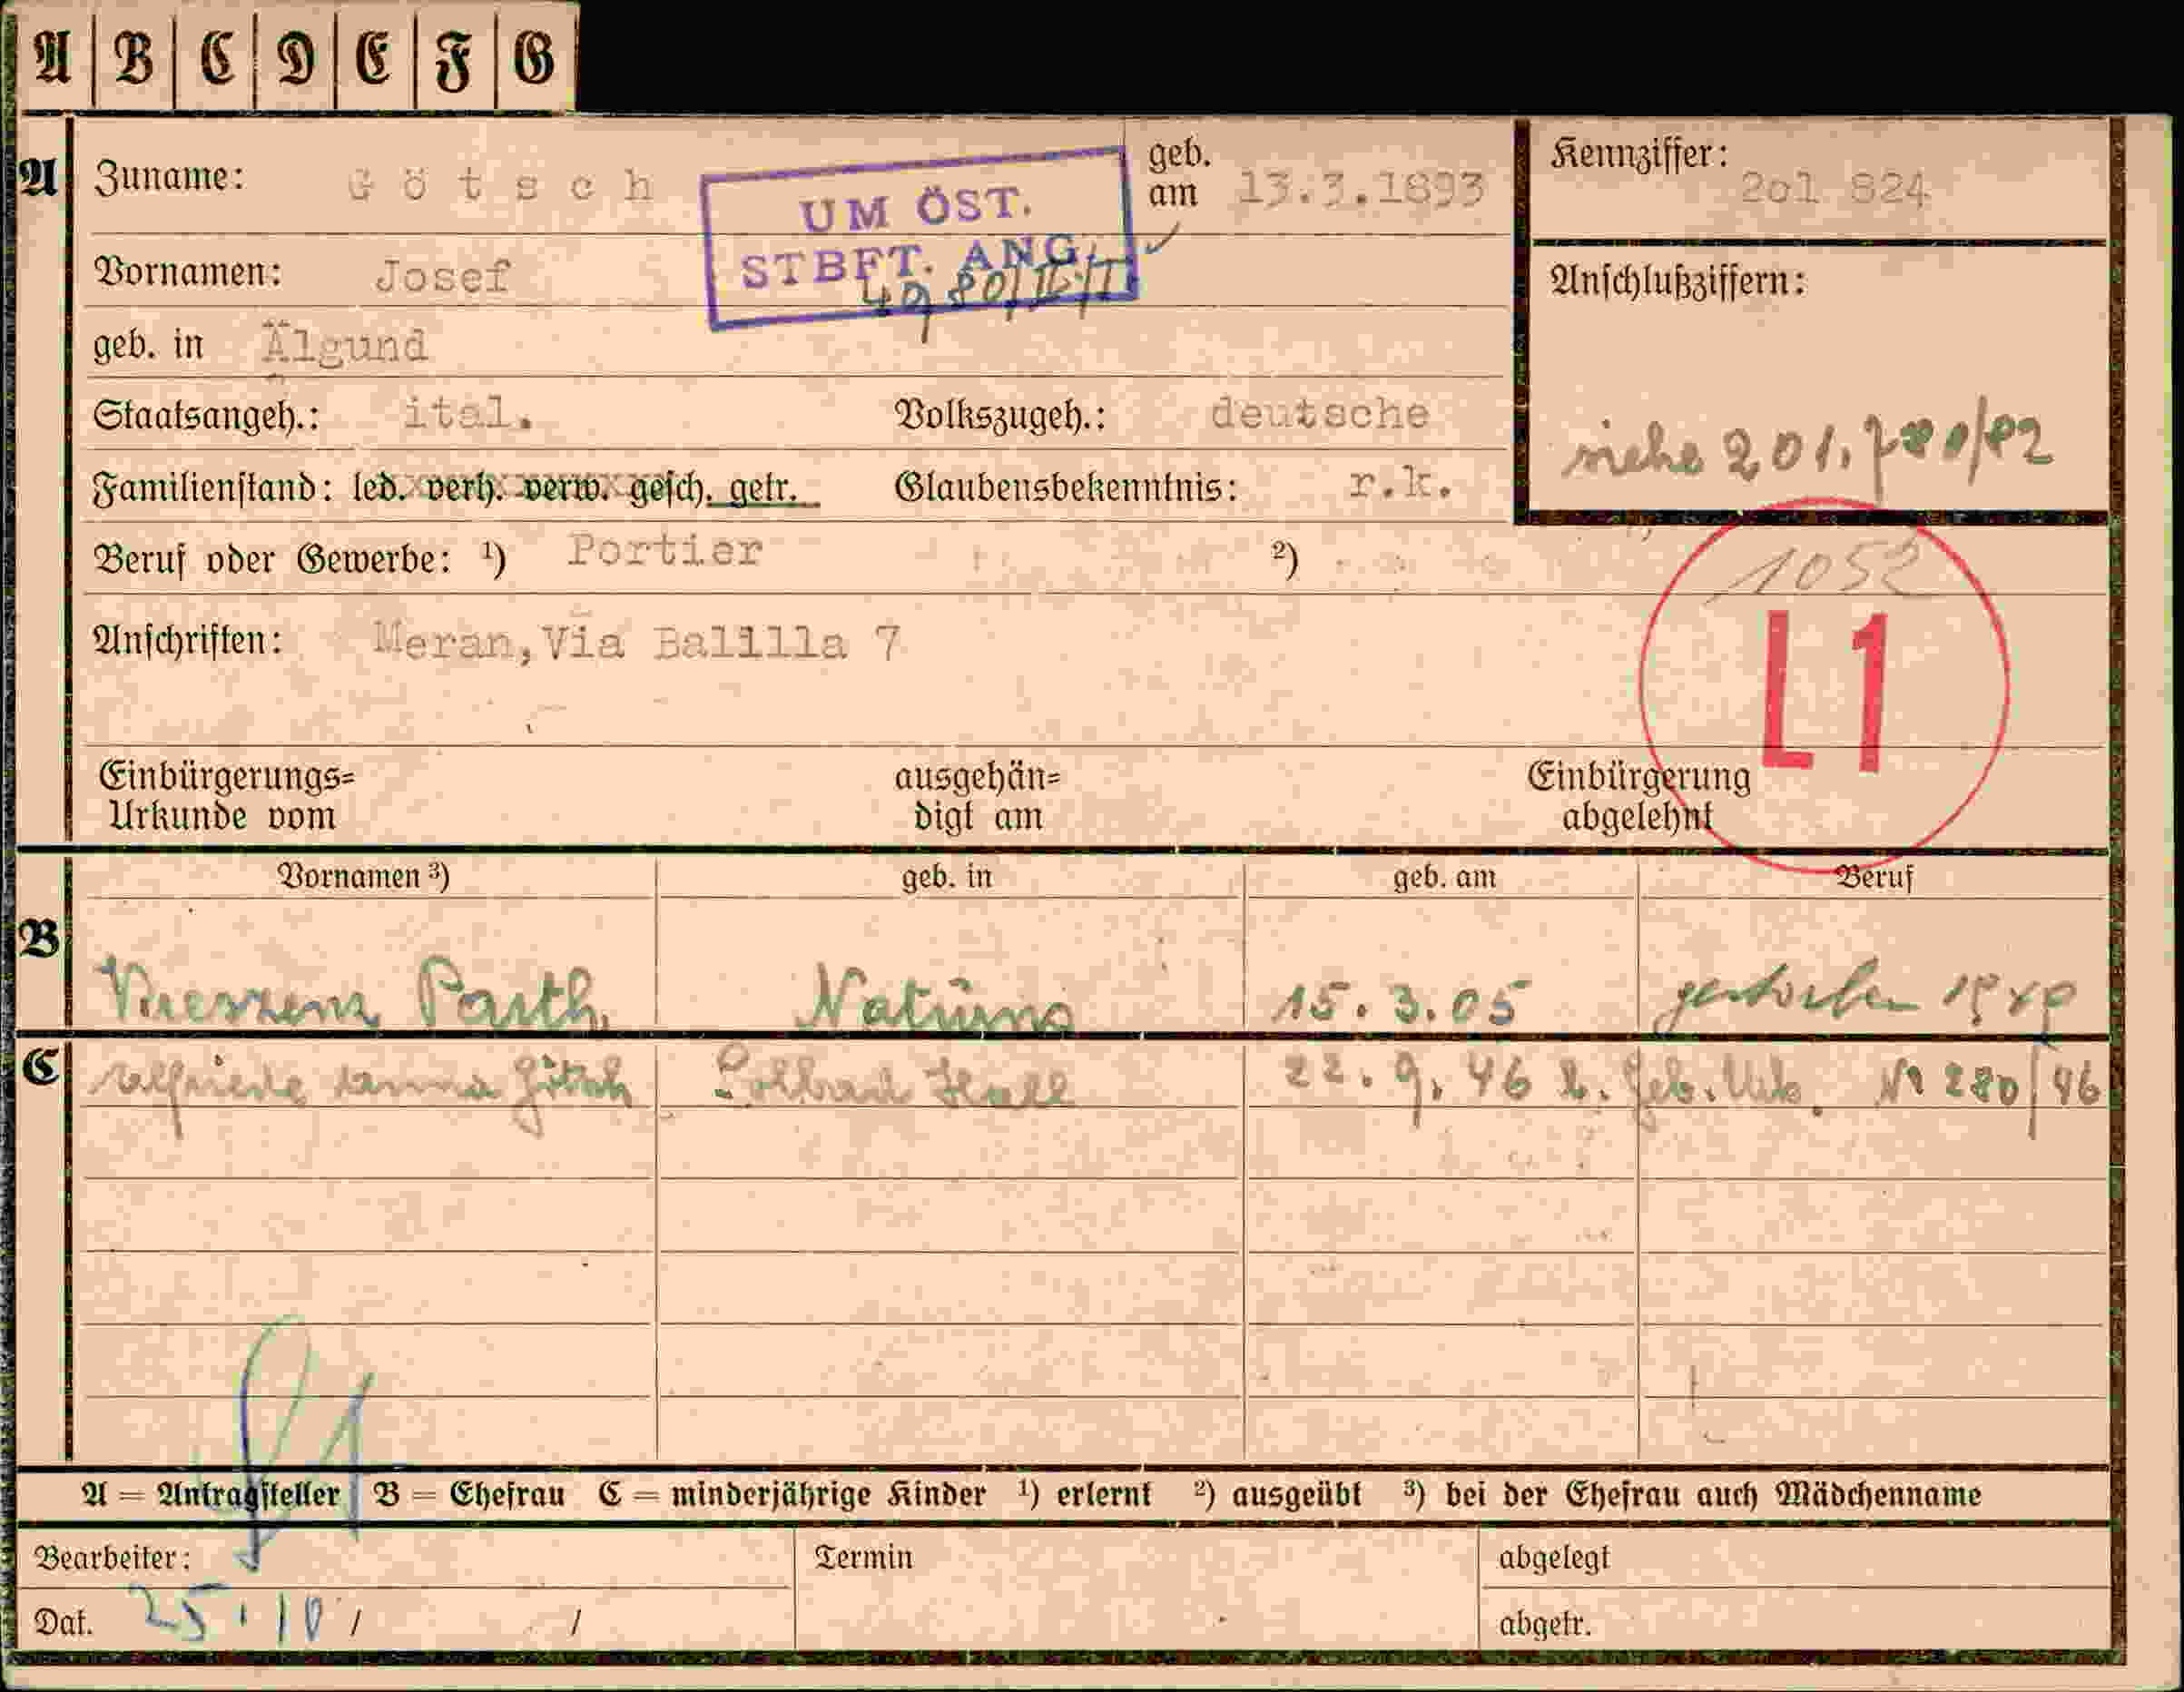 A B C D E F G
A Zuname: Götsch geb. am 13.3.1893 Kennziffer: 201 824
UM ÖST.
STBFT. ANG.
Vornamen: Josef
Anschlußziffern:
geb. in Älgund
Staatsangeh.: ital. Volkszugeh.: deutsche
siehe 201.780/82
Familienstand: led. verh. verw. gesch. getr. Glaubensbekenntnis: r.k.
Beruf oder Gewerbe: 1) Portier 2)
1052
L1
Anschriften: Meran,Via Balilla 7
Einbürgerungs= ausgehän= Einbürgerung
Urkunde vom digt am abgelehnt
Vornamen 3) geb. in geb. am Beruf
B Kreszenz Parth. Naturns 15.3.05 gestorben
C Götsch Solbad Hall 22.9.46 Geb. Urk. Nr 280/46
A = Antragsteller B = Ehefrau C = minderjährige Kinder 1) erlernt 2) ausgeübt 3) bei der Ehefrau auch Mädchenname
Bearbeiter: Termin abgelegt
Dat. 25.10 / / abgetr.